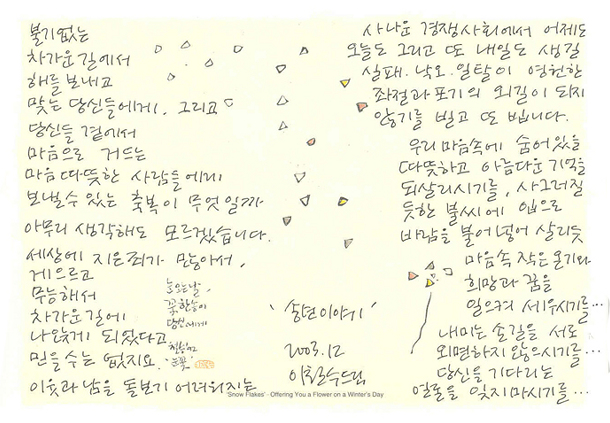 불기 없는
차가운 길에서
해를 보내고
맞는 당신들에게, 그리고
당신들 곁에서
마음으로 거드는
마음 따뜻한 사람들에게
보낼 수 있는 축복이 무엇일까
아무리 생각해도 모르겠습니다.
세상에 지은 죄가 많아서,
게으르고
무능해서
차가운 길에
나앉게 되었다고
믿을 수는 없지요.
이웃과 남을 돌보기 어려워지는
사나운 경쟁사회에서 어제도
오늘도 그리고 또 내일도 생길
실패. 낙오. 일탈이 영원한
좌절과 포기의 외길이 되지
않기를 빌고 또 빕니다.
우리 마음속에 숨어있을
따뜻하고 아름다운 기억을
되살리시기를, 사그러질
듯한 불씨에 입으로
바람을 불어 넣어 살리듯
마음속 작은 온기와
희망과 꿈을
일으켜 세우시기를…
내미는 손길을 서로
외면하지 않으시기를…
당신을 기다리는
얼굴을 잊지 마시기를…
눈오는날,
꽃 한송이
당신에게
'송년이야기'
2003.12
이철수드림
'Snow Flakes' - Offering You a Flower on a Winter's Day